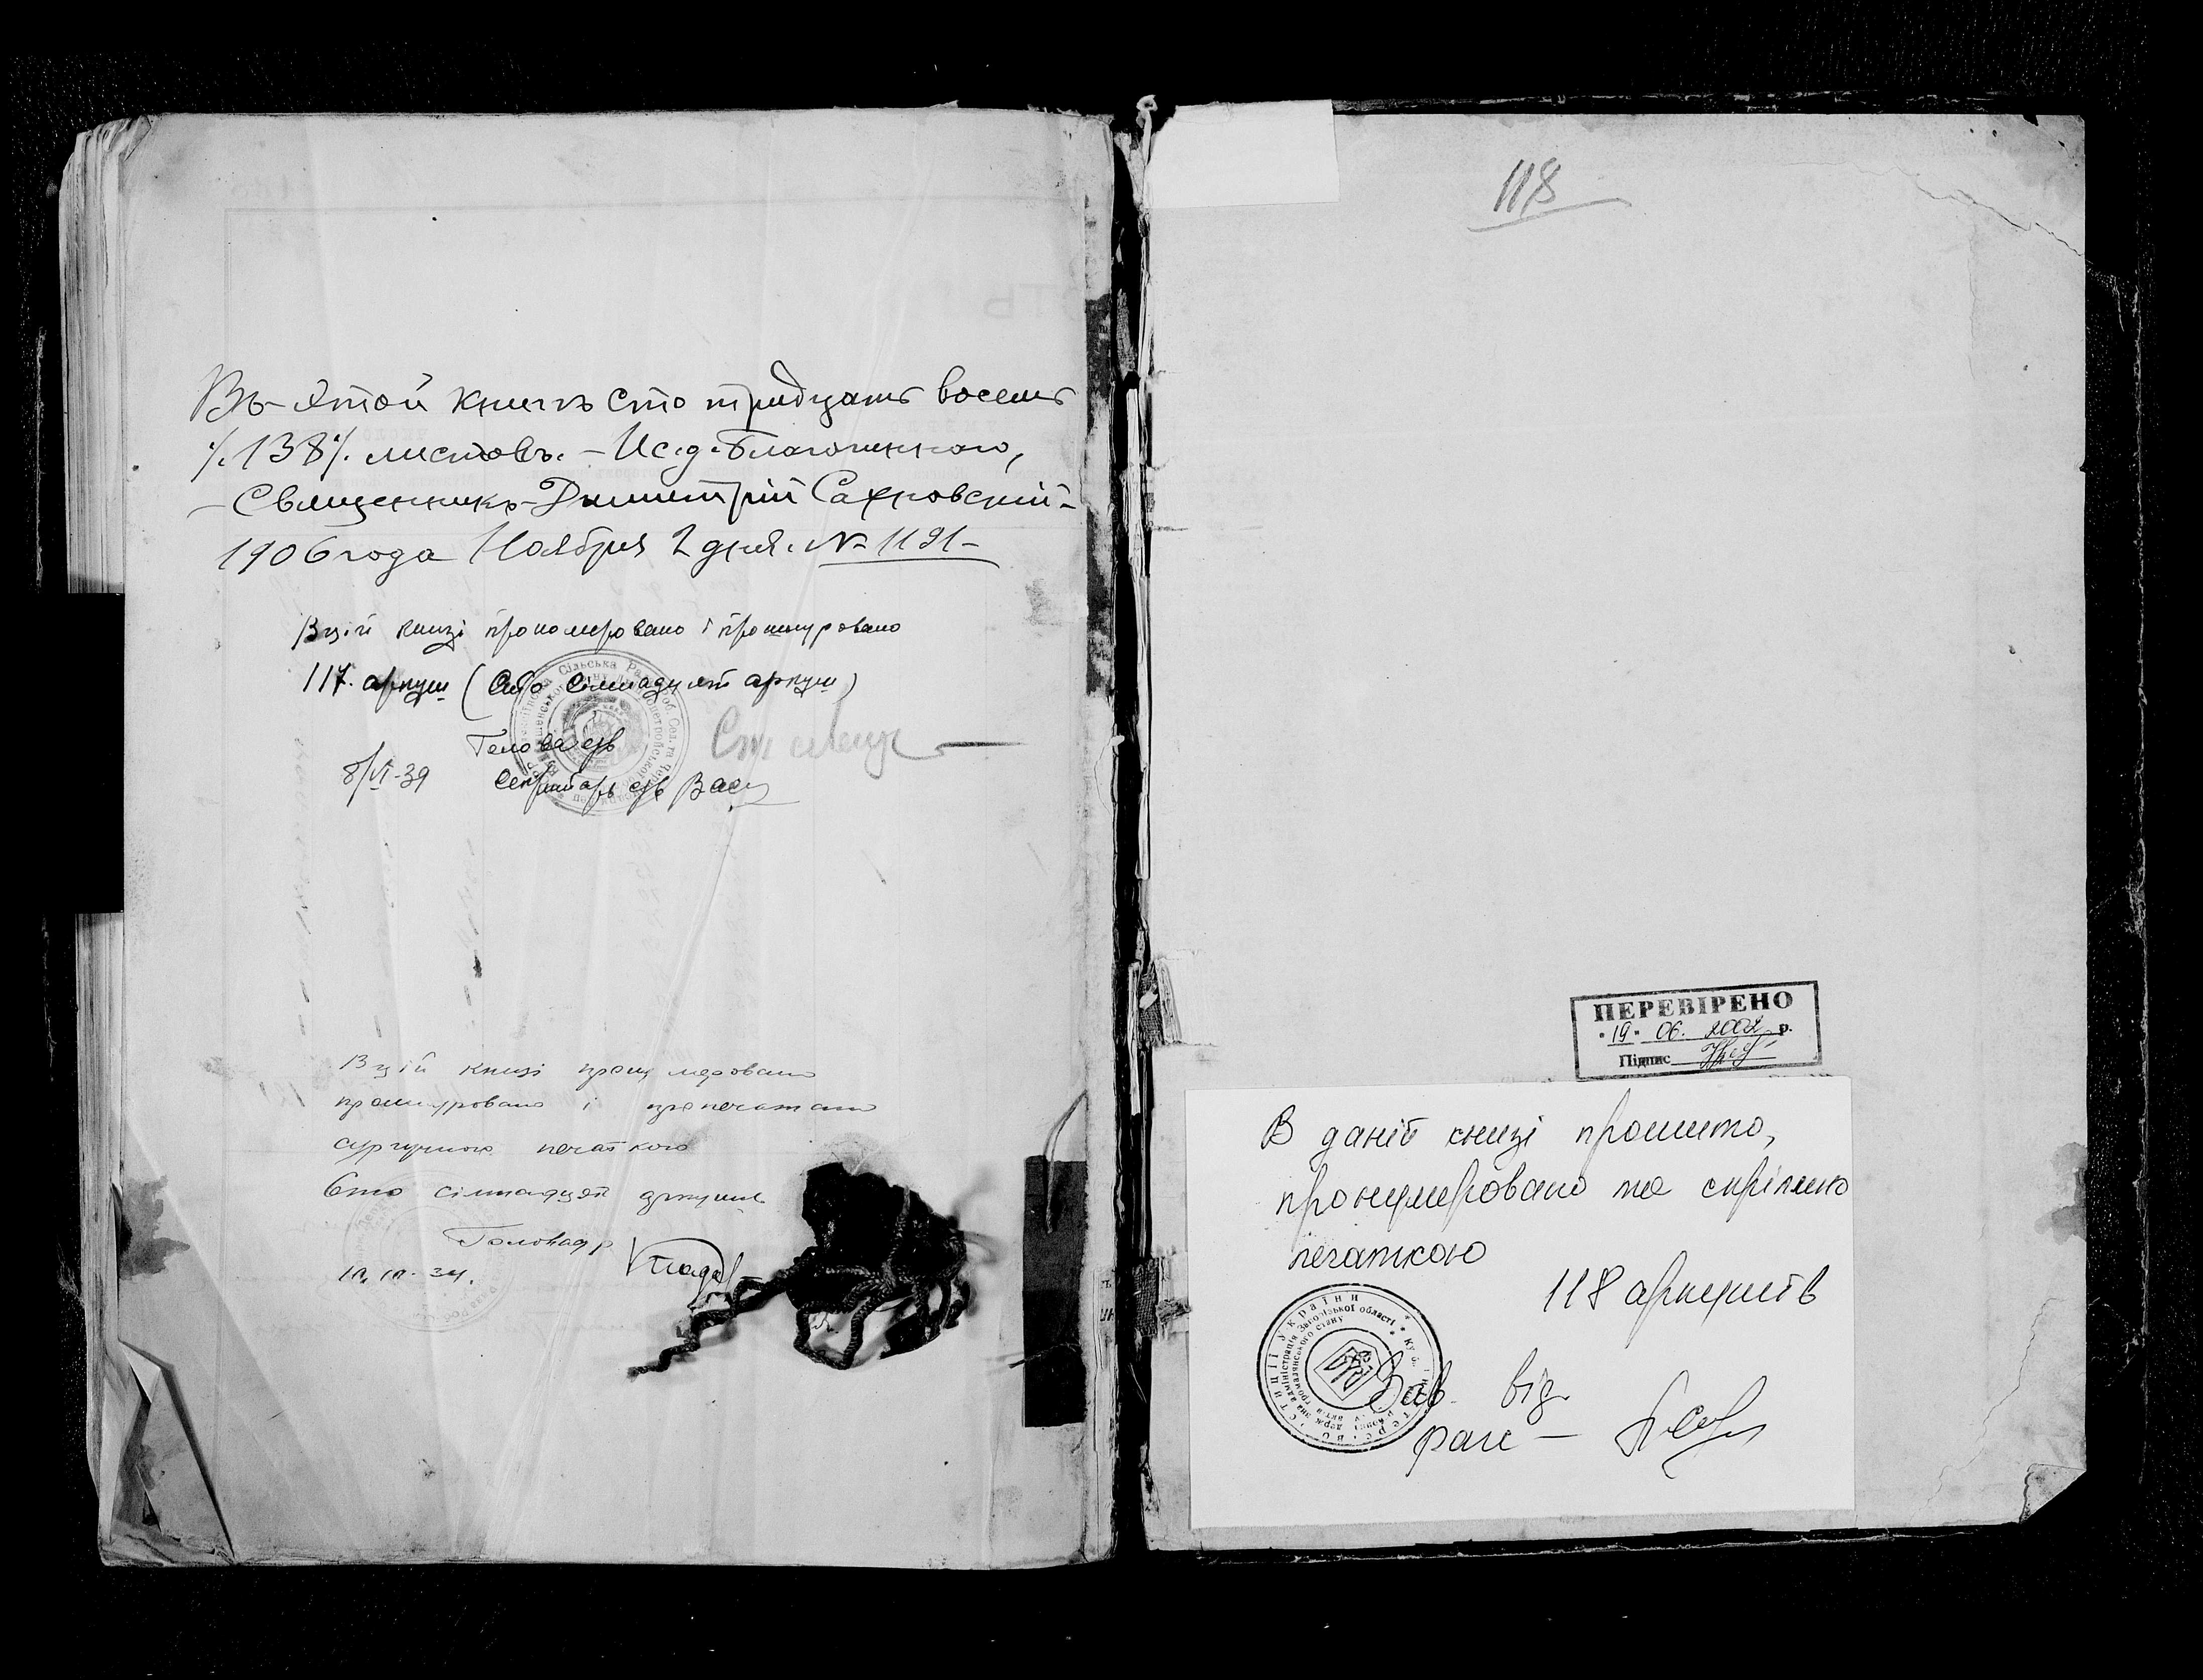 Въ этой книгѣ сто тридцать восемь
/.138/. листовъ. – Ис.д. Благочиннаго,
– Священникъ – Димитрій Сахновскій –
1906 года Ноября 2 дня. № 1191 –
В цій книзі прономеровано і прошнуровано
117 аркуш (Сто сімнадцят аркуш)
Голова с/р
8/VI-39 Секретарь с/р
В цій книзі пронумеровано
прошнуровано і пропечатано
сургучною печаткою
Сто сімнадцят аркуш
Голова
10. 10. 34.
118
ПЕРЕВІРЕНО
"19" 06. 2002 р.
Підпис
В даній книзі прошито,
пронумеровано та скріплено
печаткою
118 аркушів
Зав. від.
рагс –